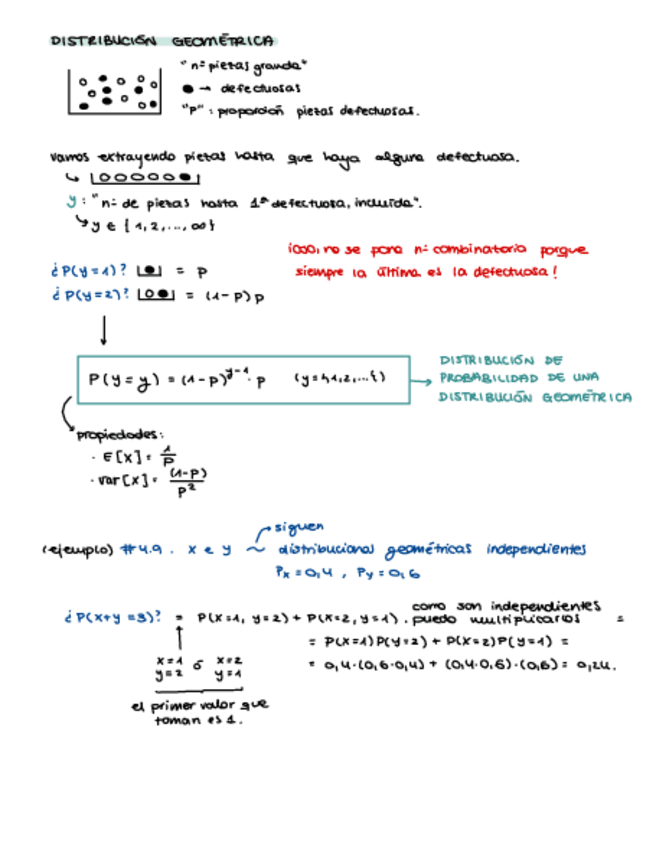 DISTRIBUCIÓN GEOMÉTRICA
"nº piezas grande"
● → defectuosas
"p": proporción piezas defectuosas.
vamos extrayendo piezas hasta que haya alguna defectuosa.
↳ |○○○○○●|
y: "nº de piezas hasta 1ª defectuosa, incluida".
↳ y ∈ {1,2,...,∞}
¡OJO!, no se pone nº combinatorio porque
siempre la última es la defectuosa!
¿P(y=1)? |●| = p
¿P(y=2)? |○●| = (1-p)p
P(y=y) = (1-p)^{y-1} · p (y={1,2,...})
→ DISTRIBUCIÓN DE
PROBABILIDAD DE UNA
DISTRIBUCIÓN GEOMÉTRICA
propiedades:
· E[X] = 1/p
· var[X] = (1-p)/p²
(ejemplo) #4.9. x e y ~ siguen
distribuciones geométricas independientes
Px = 0,4, Py = 0,6
¿P(x+y=3)? = P(x=1, y=2) + P(x=2, y=1). como son independientes
puedo multiplicarlos =
= P(x=1)P(y=2) + P(x=2)P(y=1) =
x=1 ó x=2
y=2 y=1
= 0,4·(0,6·0,4) + (0,4·0,6)·(0,6) = 0,24.
el primer valor que
toman es 1.